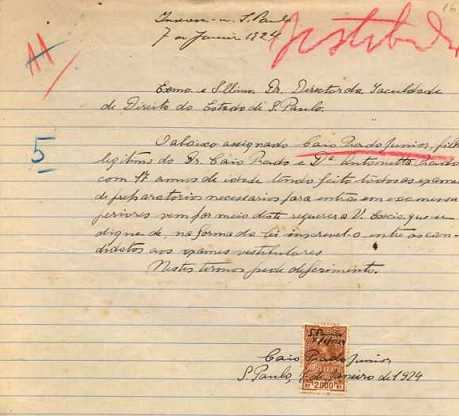 16
Inscreva-se. S. Paulo
7 de Janeiro 1924
Vestibular
11
Exmo. e Illmo. Dr. Director da Faculdade
de Direito do Estado de S. Paulo.
5
O abaixo assignado Caio Prado Junior, filho
legitimo do Dr. Caio Prado e Dª Antonietta Prado
com 17 annos de idade tendo feito todos os exames
de preparatorios necessarios para entrar em
vem por meio deste requerer a V. Excia que se
digne de, na forma da lei inscrevel-o entre os can-
didatos aos exames vestibulares.
Nestes termos pede deferimento.
S. Paulo
2000
Caio Prado Junior
S. Paulo, de Janeiro de 1924